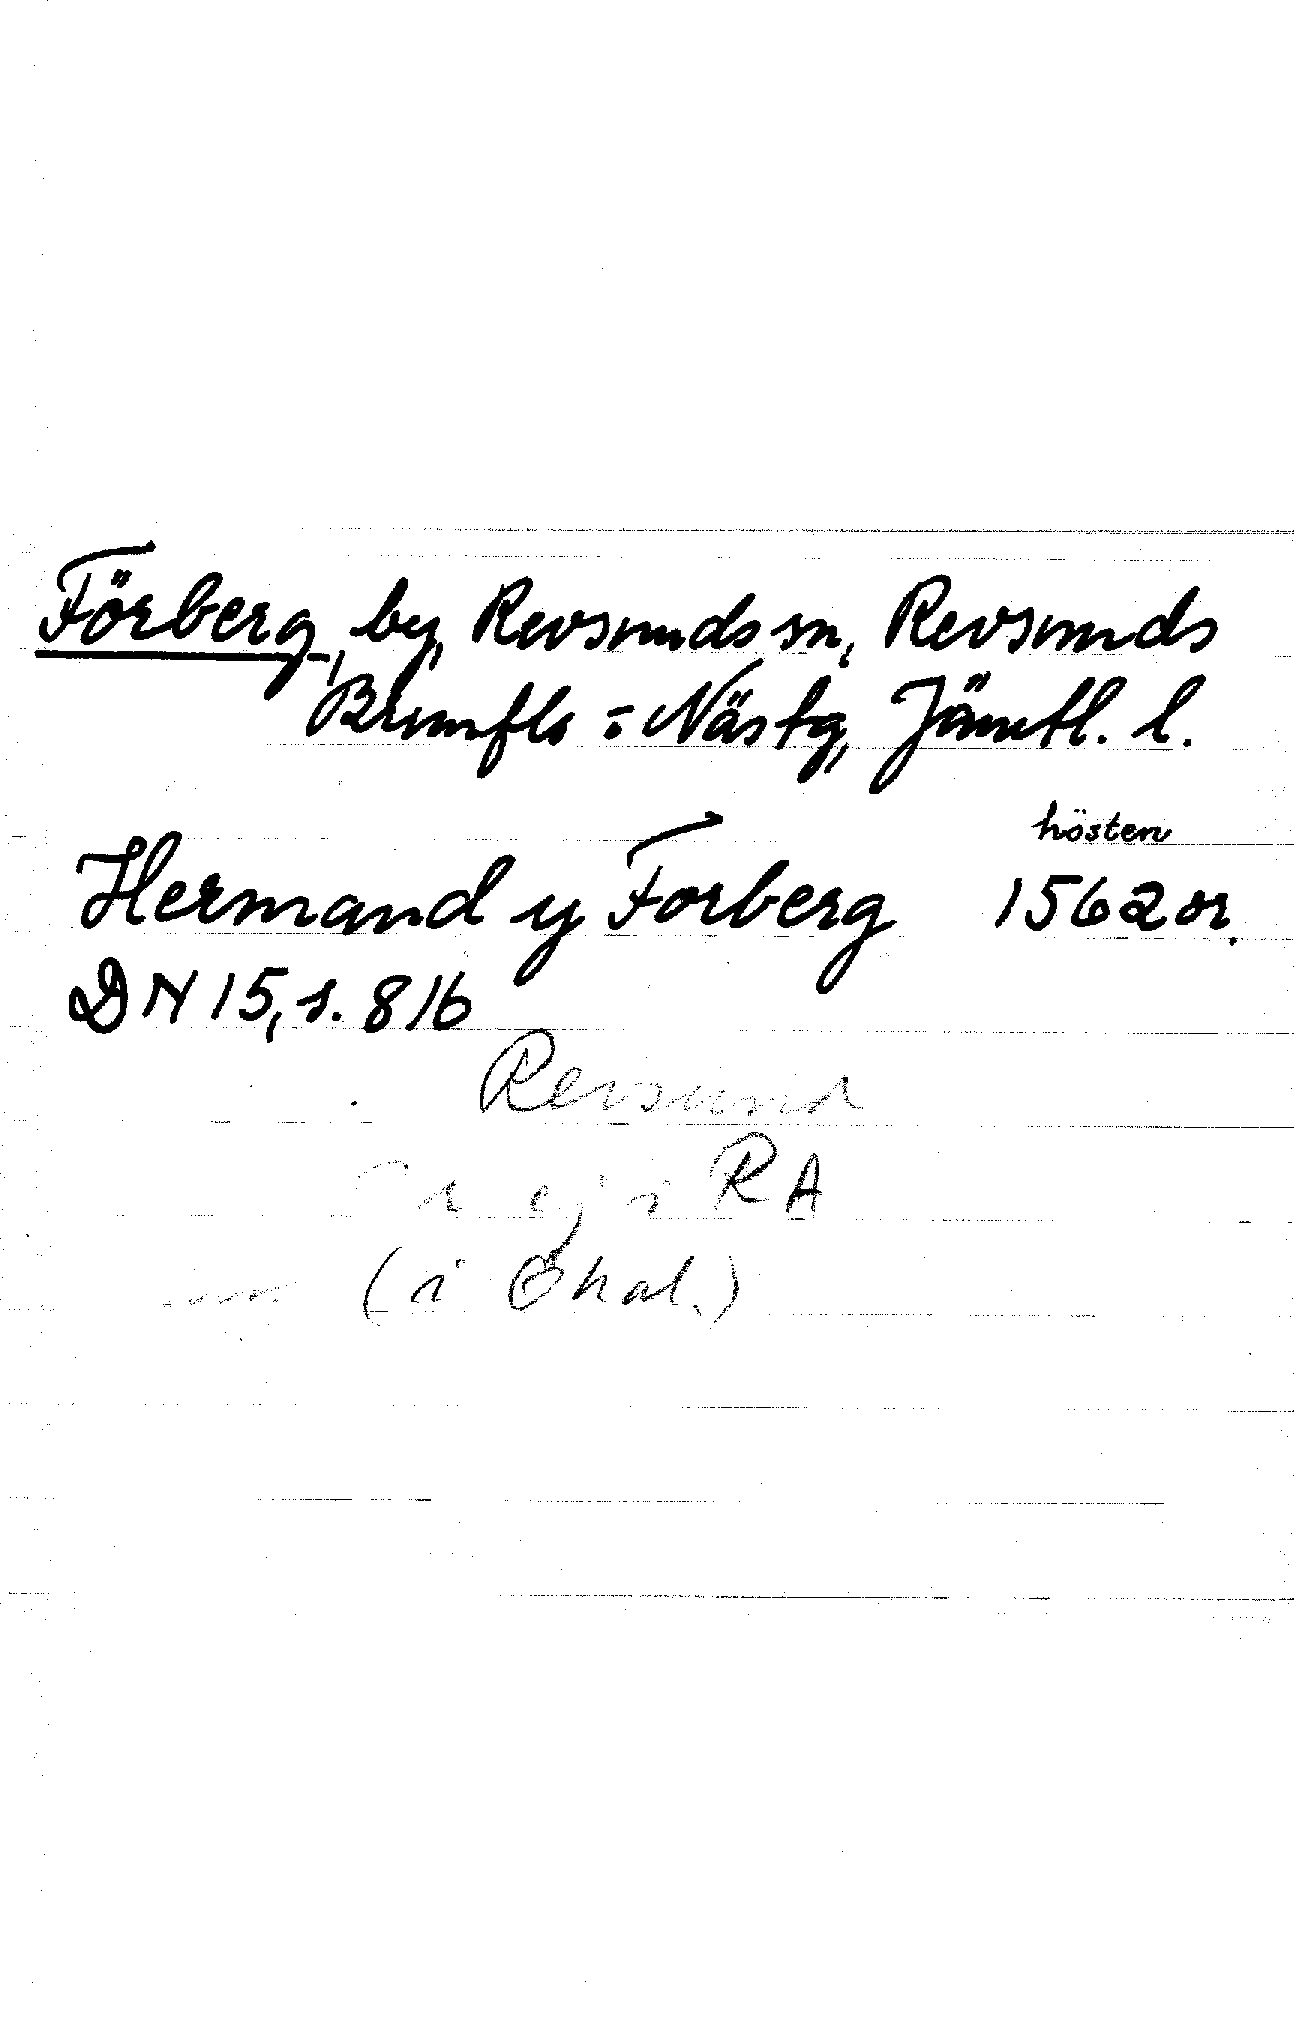 Förberg, by, Revsunds sn, Revsunds
Brunflo = Näs tg, Jämtl. l.
hösten
Hermand y Forberg 1562 or.
DN 15, s. 816
Revsund
ej i RA
(i Ökal.)